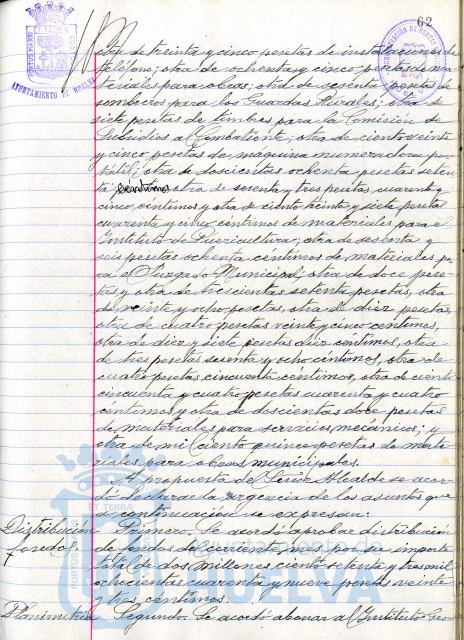 62
AYUNTAMIENTO DE HUELVA
otra de treinta y cinco pesetas de instalaciones de
teléfono; otra de ochenta y cinco pesetas de ma
teriales para obras; otra de sesenta pesetas de
sombreros para los Guardas Rurales; otra de
siete pesetas de timbres para la Comisión de
Subsidios al Combatiente; otra de ciento veinte
y cinco pesetas de maquina numeradora por
tátil; otra de doscientas ochenta pesetas seten
ta céntimos otra de sesenta y tres pesetas cuarenta y
cinco céntimos y otra de ciento treinta y siete pesetas
cuarenta y cinco céntimos de materiales para el
Instituto de Puericultura; otra de sesenta y
seis pesetas ochenta céntimos de materiales pa
ra el Juzgado Municipal, otra de doce pese
tas y otra de trescientas setenta pesetas, otra
de veinte y ocho pesetas, otra de diez pesetas,
otra de cuatro pesetas veinte y cinco centimos,
otra de diez y siete pesetas diez centimos, otra
de tres pesetas sesenta y ocho céntimos, otra de
cuatro pesetas cincuenta céntimos, otra de ciento
cincuenta y cuatro pesetas cuarenta y cuatro
céntimos y otra de doscientas doce pesetas
de materiales para servicios mecánicos; y
otra de mil ciento quince pesetas de mate
riales para obras municipales.
A propuesta del Señor Alcalde se acor
dó declarar la urgencia de los asuntos que
a continuación se expresan:
Distribución Primero. Se acordó aprobar distribución
fondos. de fondos del corriente mes por su importe
total de dos millones ciento setenta y tres mil
ochocientas cuarenta y nueve pesetas veinte
y tres céntimos.
Planimetria Segundo. Se acordó abonar al Instituto Geo